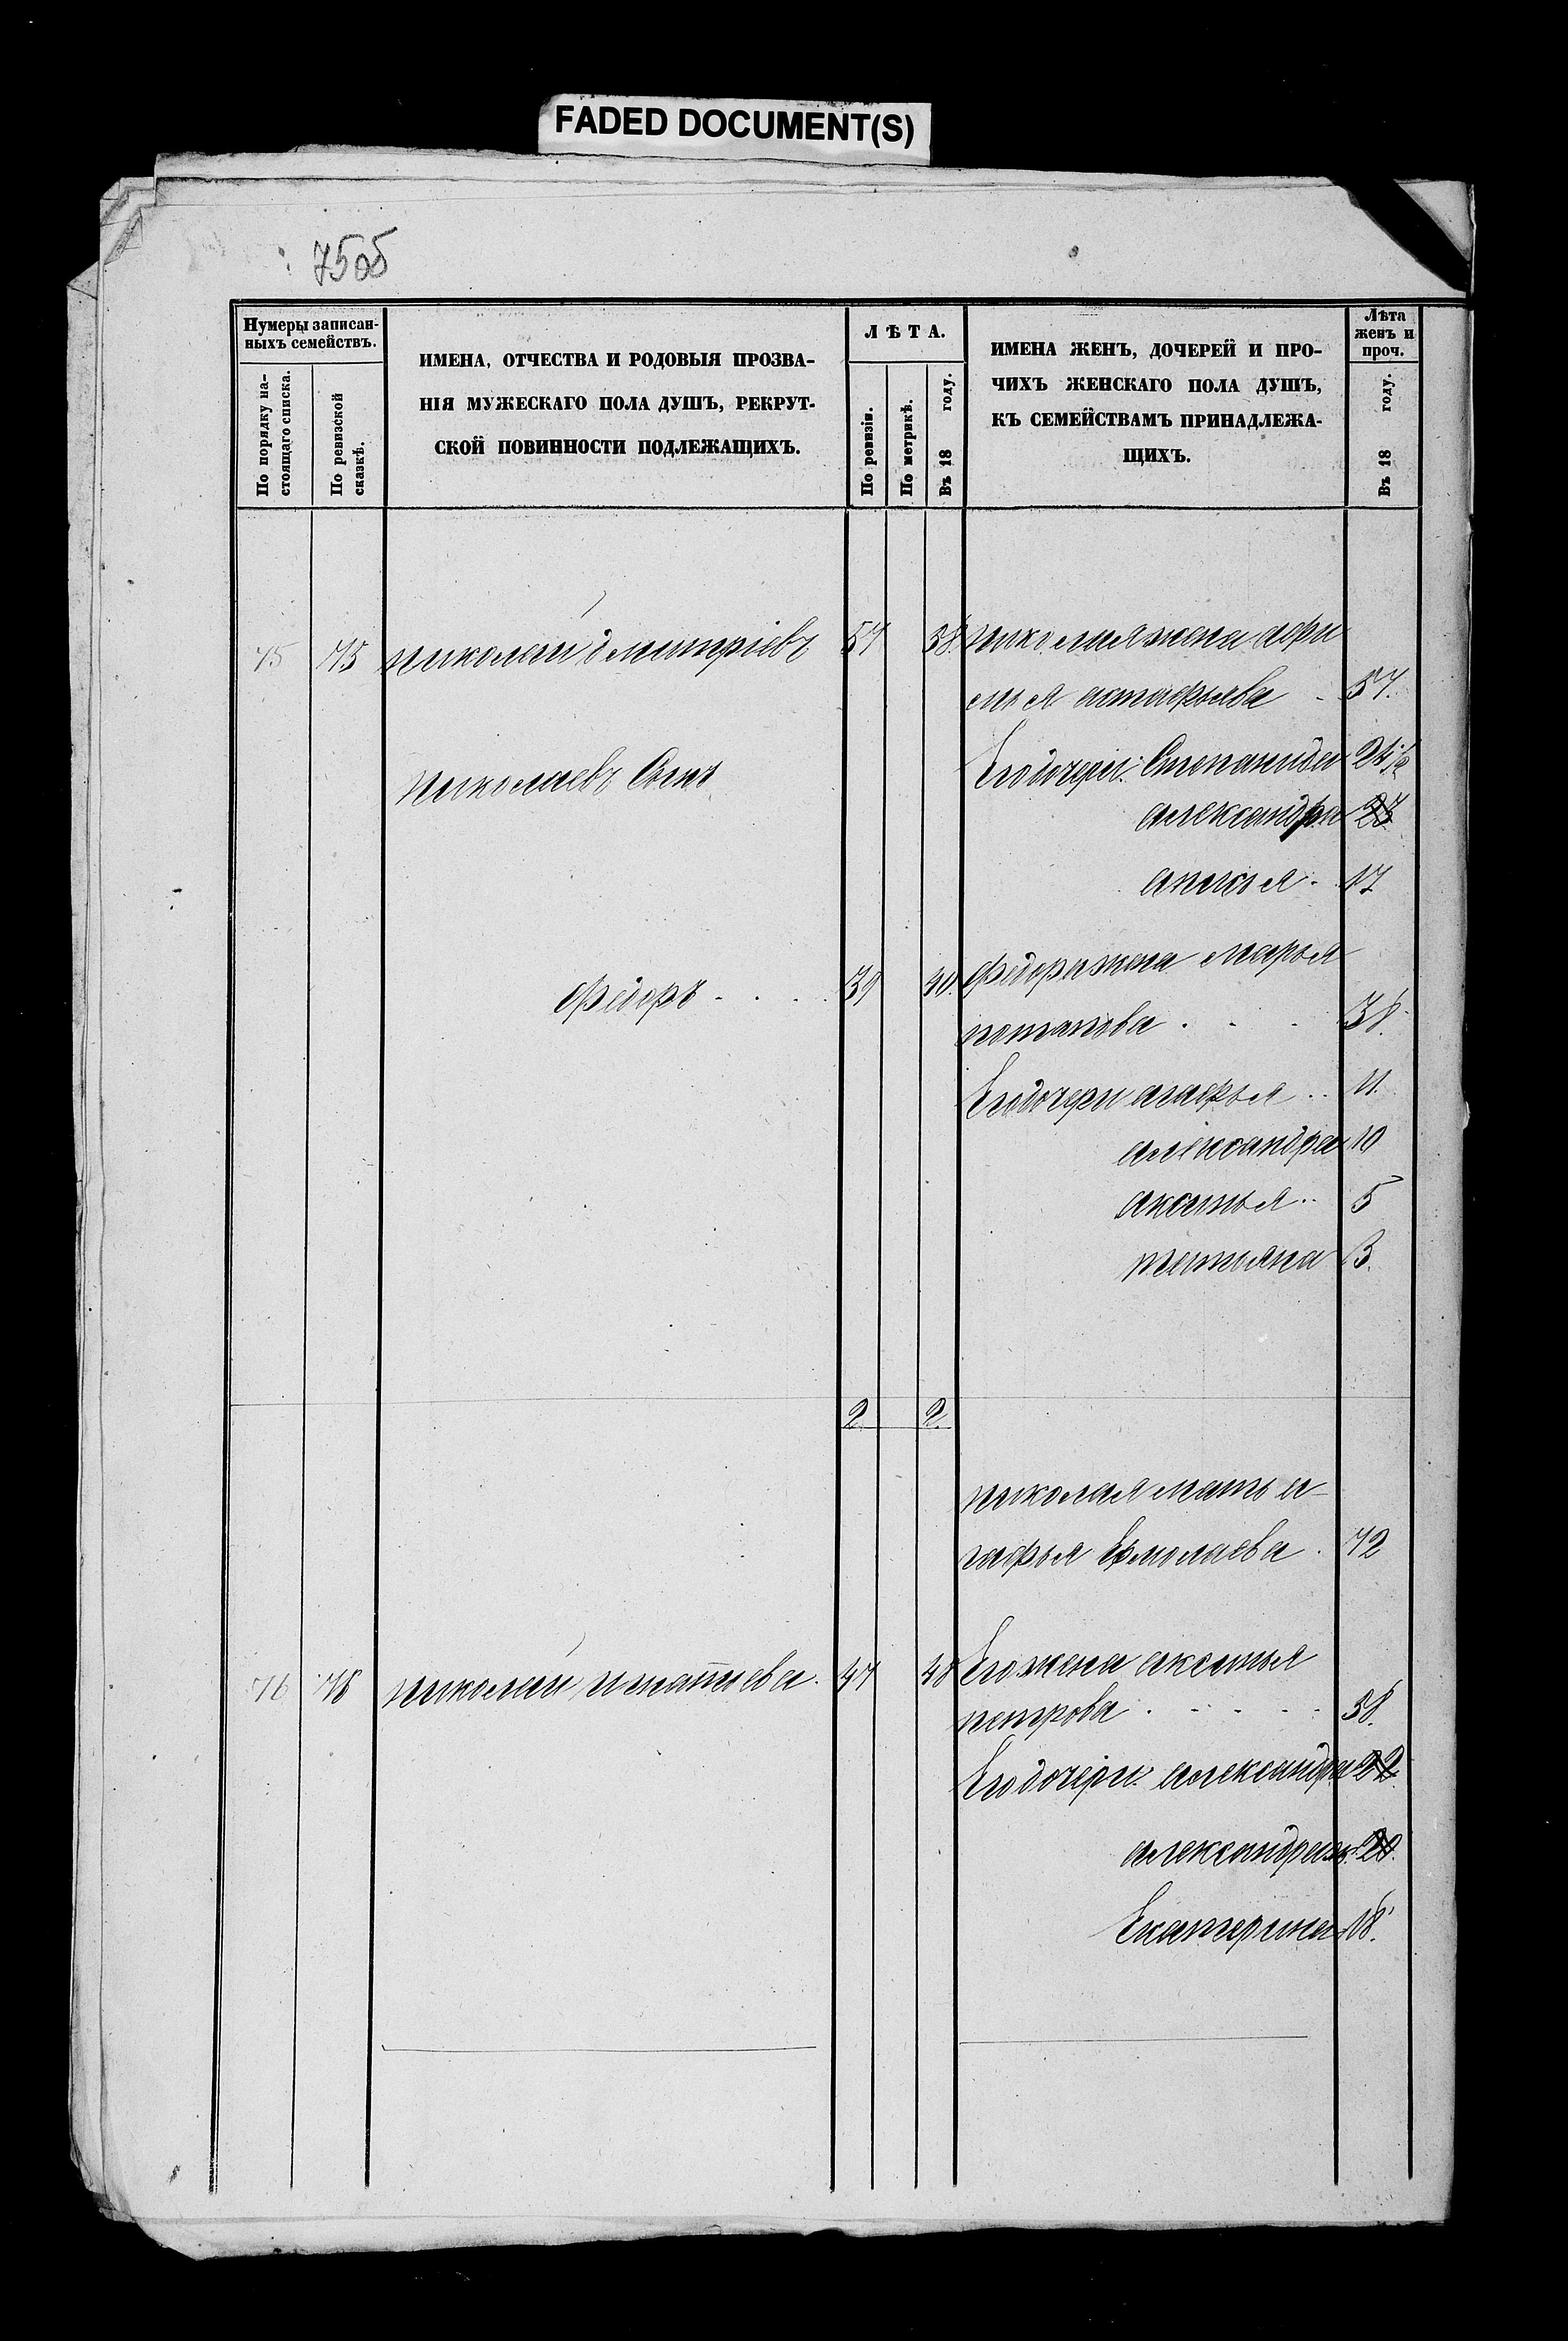 FADED DOCUMENT(S)
75об
Нумеры записан-
ныхъ семействъ.
По порядку на-
стоящаго списка.
По ревизской
сказкѣ.
ИМЕНА, ОТЧЕСТВА И РОДОВЫЯ ПРОЗВА-
НІЯ МУЖЕСКАГО ПОЛА ДУШЪ, РЕКРУТ-
СКОЙ ПОВИННОСТИ ПОДЛЕЖАЩИХЪ.
ЛѢТА.
По ревизіи.
По метрикѣ.
Въ 18 году.
ИМЕНА ЖЕНЪ, ДОЧЕРЕЙ И ПРО-
ЧИХЪ ЖЕНСКАГО ПОЛА ДУШЪ,
КЪ СЕМЕЙСТВАМЪ ПРИНАДЛЕЖА-
ЩИХЪ.
Лѣта
женъ и
проч.
Въ 18 году.
75 75 николай дмитріевъ 57 58. николая жена афи
мья астафьева 57.
николаевъ Сынъ
Его дочери: Степанида 24
александра 23
анисья 17
Федоръ 39 40. Федора жена марья
потапова 38.
Его дочери агафья 11.
александра 10
аксинья 5
татьяна 3.
2 2.
николая мать а-
гафья Ермолаева 72
76 78 николай игнатьева 47 48 Его жена аксинья
петрова 38.
Его дочери александра 22
александра 20.
Екатерина 18.